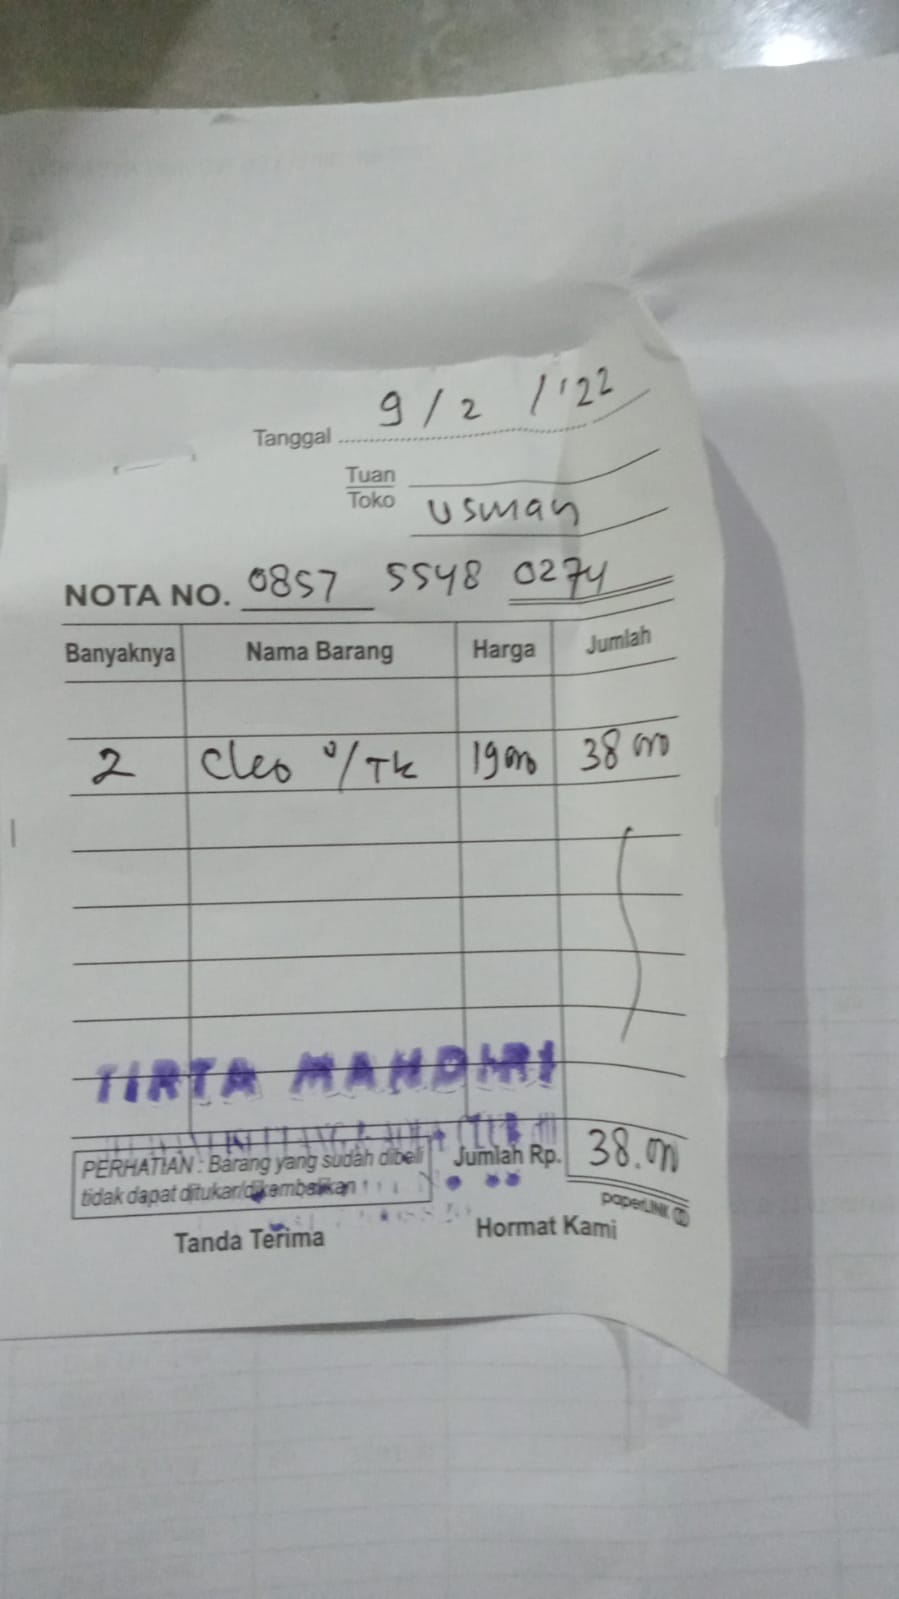 Tanggal 9 / 2 / '22
Tuan
Toko Usman
NOTA NO. 0857 5548 0274
Banyaknya Nama Barang Harga Jumlah
2 Cleo /Tk 19000 38 000
TIRTA MANDIRI
PERHATIAN : Barang yang sudah dibeli
tidak dapat ditukar/dikembalikan
Jumlah Rp. 38.000
paperLINK
Tanda Terima Hormat Kami